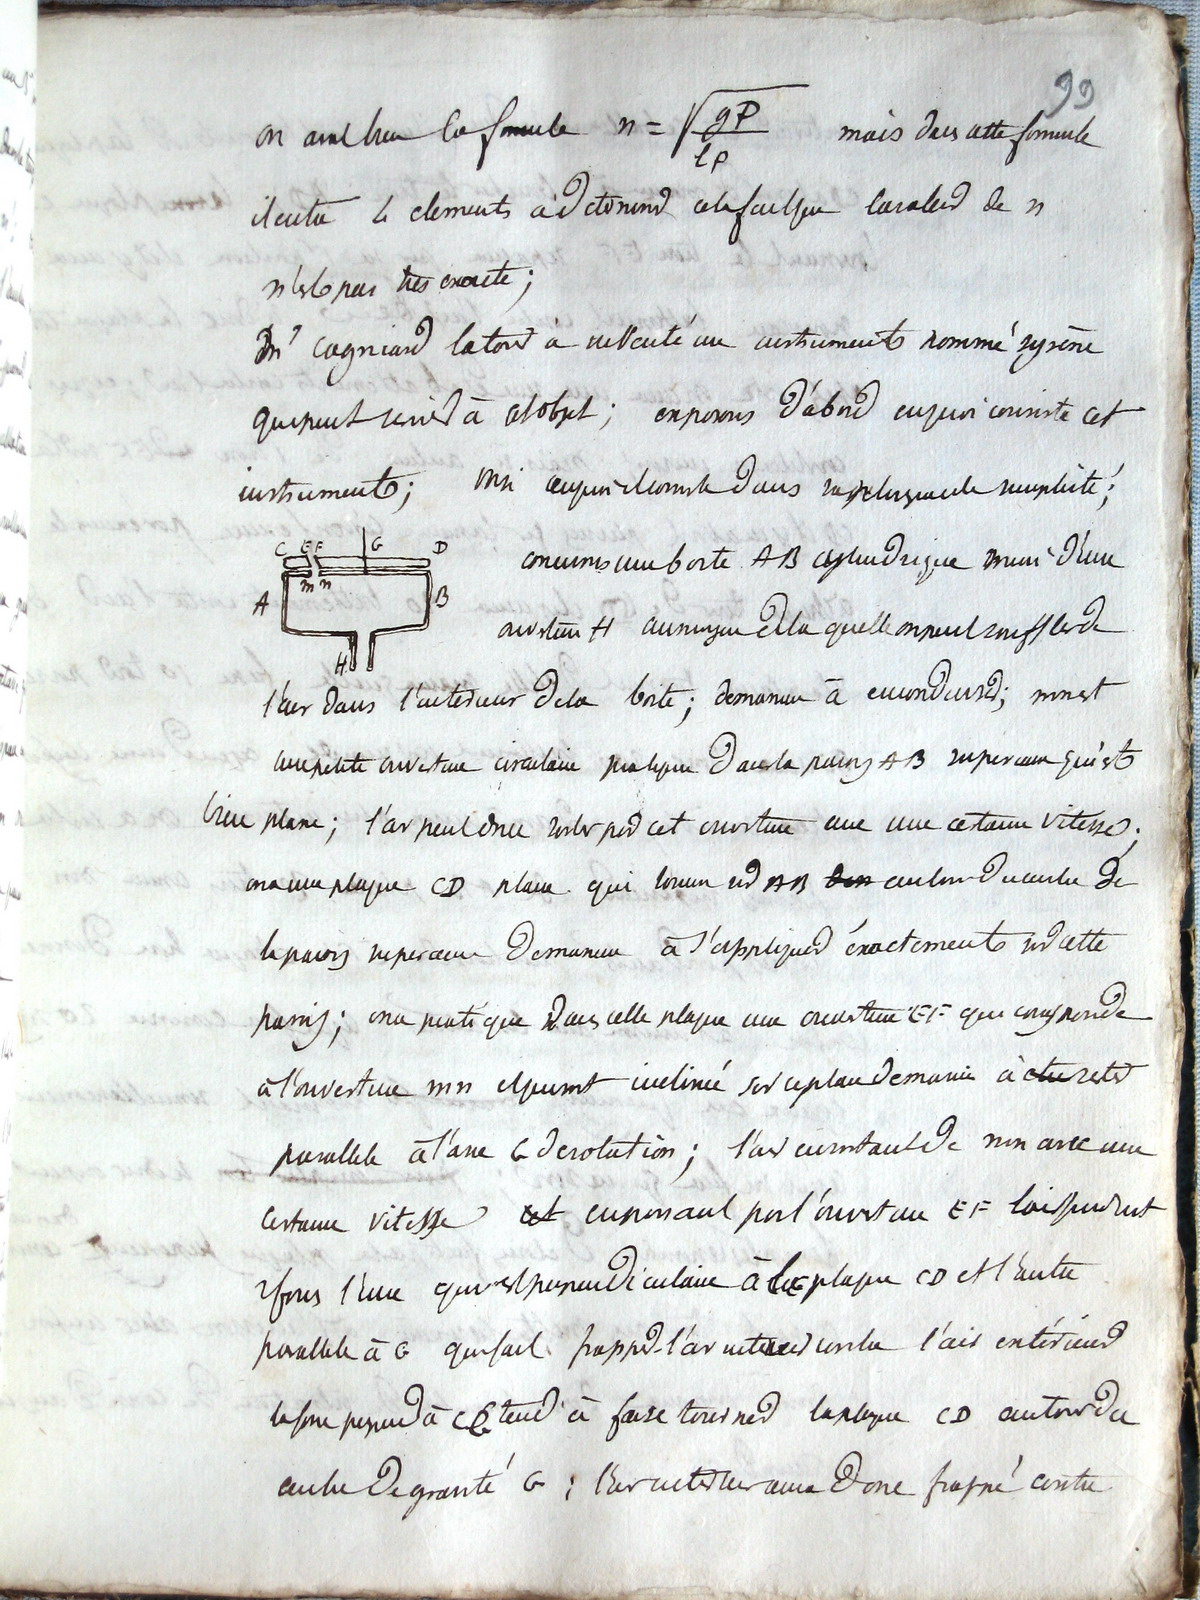 99
on avait bien la formule n = √gP/lp mais dans cette formule
il entre 4 elements à determiner cela fait que la valeur de n
n'est pas tres exacte ;
Mr cagniard latour à inventé un instrument nommé syrène
qui peut servir à cet objet ; exposons d'abord en quoi consiste cet
instrument ; voici en quoi il consiste dans sa plus grande simplicité ;
C EF G D
m n
A B
H
concevons une boite AB cylindrique muni d'une
ouverture H au moyen de la quelle on peut souffler de
l'air dans l'interieur de la boite ; de maniere à en conduire ; mn est
une petite ouverture circulaire pratiqué dans la parois AB superieure qui est
bien plane ; l'air peut donc sortir par cet ouverture avec une certaine vitesse ;
on a une plaque CD plane qui tourne sur AB autour du centre de
la parois superieure de maniere à s'appliquer éxactement sur cette
parois ; on a pratiqué dans celle plaque une ouverture EF qui corresponde
à l'ouverture mn et qui soit incliné sur ce plan de maniere à rester
parallele à l'axe G de rotation ; l'air en sortant de mn avec une
certaine vitesse et en passant par l'ouverture EF
2 forces l'une qui est perpendiculaire à la plaque CD et l'autre
parallele à G qui fait frapper l'air interieur contre l'air extérieur
la force perpend à CG tend à faire tourner la plaque CD autour du
centre de gravité G ; l'air interieur aura donc frappé contre